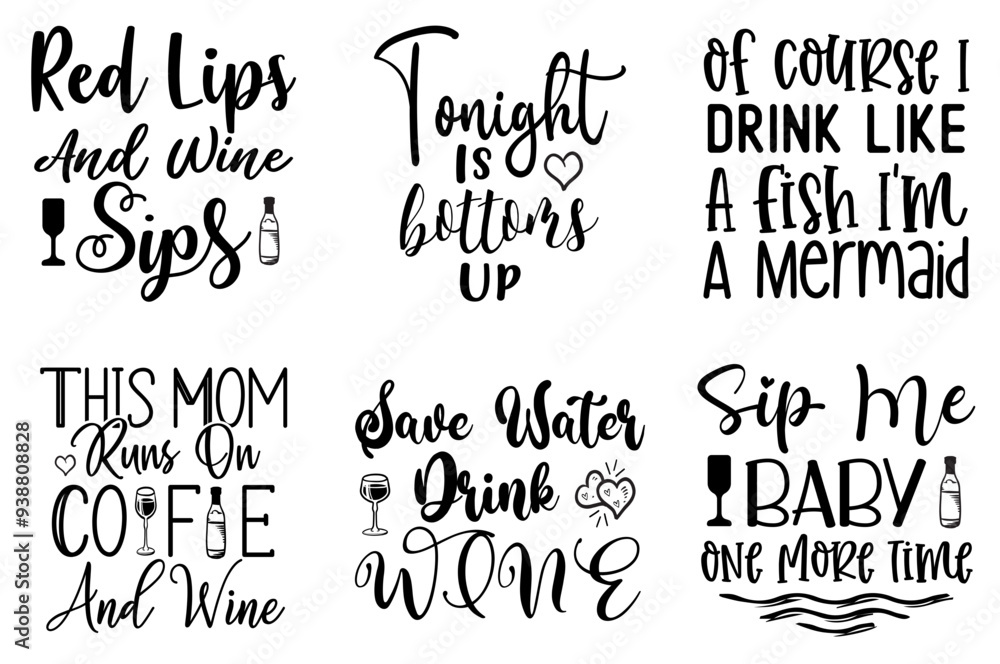 Red Lips
And Wine
Sips
Tonight
IS
bottoms
UP
Of course I
DRINK LIKE
A fish I'm
A Mermaid
THIS MOM
Runs On
COFFEE
And Wine
Save Water
Drink
WINE
Sip Me
BABY
ONE MORE TIME
Adobe Stock | #938808828